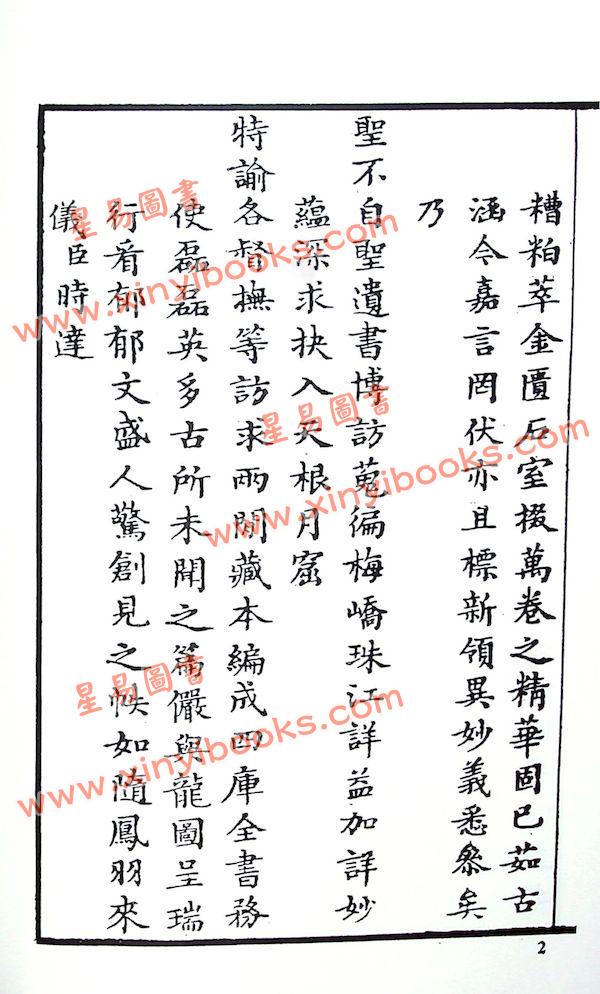 糟粕萃金匱石室掇萬卷之精華固已茹古
涵今嘉言罔伏亦且標新領異妙義悉叅矣
乃
聖不自聖遺書博訪蒐徧梅嶠珠江詳益加詳妙
蘊深求抉入天根月窟
特諭各督撫等訪求兩閒藏本編成四庫全書務
使磊磊英多古所未聞之篇儼與龍圖呈瑞
行看郁郁文盛人驚創見之帙如隨鳳羽來
儀臣時達
2
星易圖書
www.xinyibooks.com
星易圖書
www.xinyibooks.com
星易圖書
www.xinyibooks.com